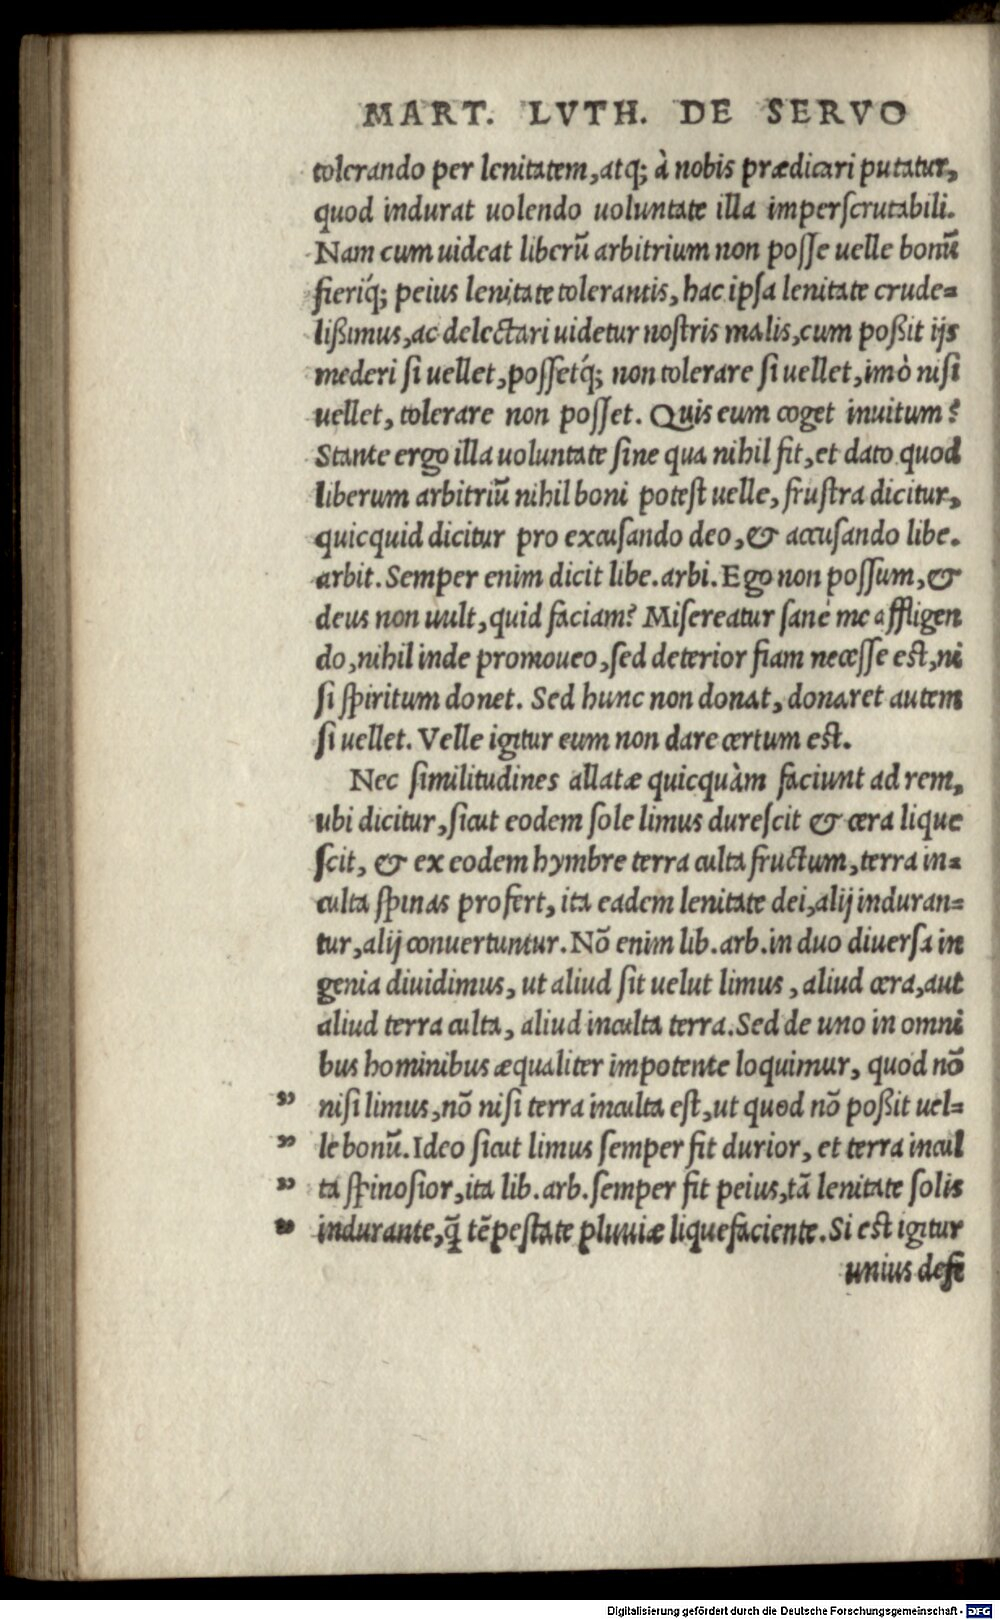 MART. LVTH. DE SERVO
tolerando per lenitatem, atq; à nobis prædicari putatur,
quod indurat uolendo uoluntate illa imperſcrutabili.
Nam cum uideat liberũ arbitrium non poſſe uelle bonũ
fieriq́; peius lenitate tolerantis, hac ipſa lenitate crude=
lißimus, ac delectari uidetur noſtris malis, cum poßit ijs
mederi ſi uellet, poſſetq́; non tolerare ſi uellet, imò niſi
uellet, tolerare non poſſet. Quis eum coget inuitum?
Stante ergo illa uoluntate ſine qua nihil fit, et dato quod
liberum arbitriũ nihil boni poteſt uelle, fruſtra dicitur,
quicquid dicitur pro excuſando deo, & accuſando libe.
arbit. Semper enim dicit libe. arbi. Ego non poſſum, &
deus non uult, quid faciam? Miſereatur ſanè me affligen
do, nihil inde promoueo, ſed deterior fiam neceſſe eſt, ni
ſi ſpiritum donet. Sed hunc non donat, donaret autem
ſi uellet. Velle igitur eum non dare certum eſt.
Nec ſimilitudines allatæ quicquàm faciunt ad rem,
ubi dicitur, ſicut eodem ſole limus dureſcit & cera lique
ſcit, & ex eodem hymbre terra culta fructum, terra in=
culta ſpinas profert, ita eadem lenitate dei, alij induran=
tur, alij conuertuntur. Nõ enim lib. arb. in duo diuerſa in
genia diuidimus, ut aliud ſit uelut limus, aliud cera, aut
aliud terra culta, aliud inculta terra. Sed de uno in omni
bus hominibus æqualiter impotente loquimur, quod nõ
„ niſi limus, nõ niſi terra inculta eſt, ut quod nõ poßit uel=
„ le bonũ. Ideo ſicut limus ſemper fit durior, et terra incul
„ ta ſpinoſior, ita lib. arb. ſemper fit peius, tã lenitate ſolis
„ indurante, q̃ tẽpeſtate pluuiæ liquefaciente. Si eſt igitur
unius defi
Digitalisierung gefördert durch die Deutsche Forschungsgemeinschaft - DFG